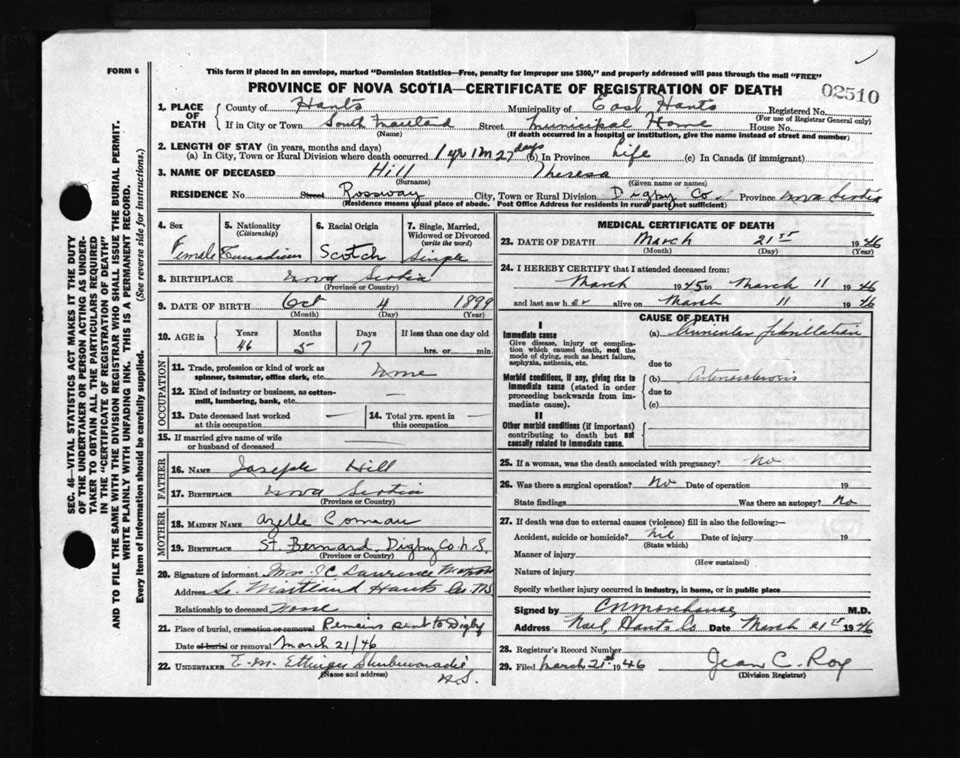 FORM 6
This form if placed in an envelope, marked "Dominion Statistics—Free, penalty for improper use $300," and properly addressed will pass through the mail "FREE"
PROVINCE OF NOVA SCOTIA—CERTIFICATE OF REGISTRATION OF DEATH
02510
1. PLACE OF DEATH
County of Hants Municipality of East Hants Registered No.
(For use of Registrar General only)
If in City or Town South Maitland Street Municipal Home House No.
(Name) (If death occurred in a hospital or institution, give the name instead of street and number)
2. LENGTH OF STAY (in years, months and days)
(a) In City, Town or Rural Division where death occurred 1 yr 1 m 27 days (b) In Province Life (c) In Canada (if immigrant)
3. NAME OF DECEASED Hill Theresa
(Surname) (Given name or names)
RESIDENCE No Street Rossway City, Town or Rural Division Digby Co. Province Nova Scotia
(Residence means usual place of abode. Post Office Address for residents in rural parts not sufficient)
4. Sex
Female
5. Nationality
(Citizenship)
Canadian
6. Racial Origin
Scotch
7. Single, Married, Widowed or Divorced
(write the word)
Single
8. BIRTHPLACE Nova Scotia
(Province or Country)
9. DATE OF BIRTH Oct 4 1899
(Month) (Day) (Year)
10. AGE in Years Months Days If less than one day old
46 5 17 hrs. or min.
OCCUPATION
11. Trade, profession or kind of work as spinner, teamster, office clerk, etc. None
12. Kind of industry or business, as cotton-mill, lumbering, bank, etc. —
13. Date deceased last worked at this occupation —
14. Total yrs. spent in this occupation —
15. If married give name of wife or husband of deceased
FATHER
16. NAME Joseph Hill
17. BIRTHPLACE Nova Scotia
(Province or Country)
MOTHER
18. MAIDEN NAME Azelle Comeau
19. BIRTHPLACE St. Bernard, Digby Co. N.S.
(Province or Country)
20. Signature of informant Mrs. Lawrence Matron
Address So. Maitland Hants Co. NS
Relationship to deceased None
21. Place of burial, cremation or removal Remains sent to Digby
Date of burial or removal March 21/46
22. UNDERTAKER E. M. Ettinger Shubenacadie
(Name and address) N.S.
MEDICAL CERTIFICATE OF DEATH
23. DATE OF DEATH March 21st 1946
(Month) (Day) (Year)
24. I HEREBY CERTIFY that I attended deceased from:
March 1945 to March 11 1946
and last saw her alive on March 11 1946
CAUSE OF DEATH
I
Immediate cause
Give disease, injury or complication which caused death, not the mode of dying, such as heart failure, asphyxia, asthenia, etc.
(a) Auricular fibrillation
due to
Morbid conditions, if any, giving rise to immediate cause (stated in order proceeding backwards from immediate cause).
(b) Arteriosclerosis
due to
(c)
II
Other morbid conditions (if important) contributing to death but not causally related to immediate cause.
25. If a woman, was the death associated with pregnancy? No
26. Was there a surgical operation? No Date of operation 19
State findings Was there an autopsy? No
27. If death was due to external causes (violence) fill in also the following:—
Accident, suicide or homicide? Nil Date of injury 19
(State which)
Manner of injury
(How sustained)
Nature of injury
Specify whether injury occurred in industry, in home, or in public place
Signed by C N Morehouse, M.D.
Address Noel, Hants Co Date March 21st 1946
28. Registrar's Record Number
29. Filed March 21st 1946 Jean C. Roy
(Division Registrar)
SEC. 46—VITAL STATISTICS ACT MAKES IT THE DUTY OF THE UNDERTAKER OR PERSON ACTING AS UNDERTAKER TO OBTAIN ALL THE PARTICULARS REQUIRED IN THE "CERTIFICATE OF REGISTRATION OF DEATH" AND TO FILE THE SAME WITH THE DIVISION REGISTRAR WHO SHALL ISSUE THE BURIAL PERMIT.
WRITE PLAINLY WITH UNFADING INK. THIS IS A PERMANENT RECORD.
Every item of information should be carefully supplied. (See reverse side for instructions.)